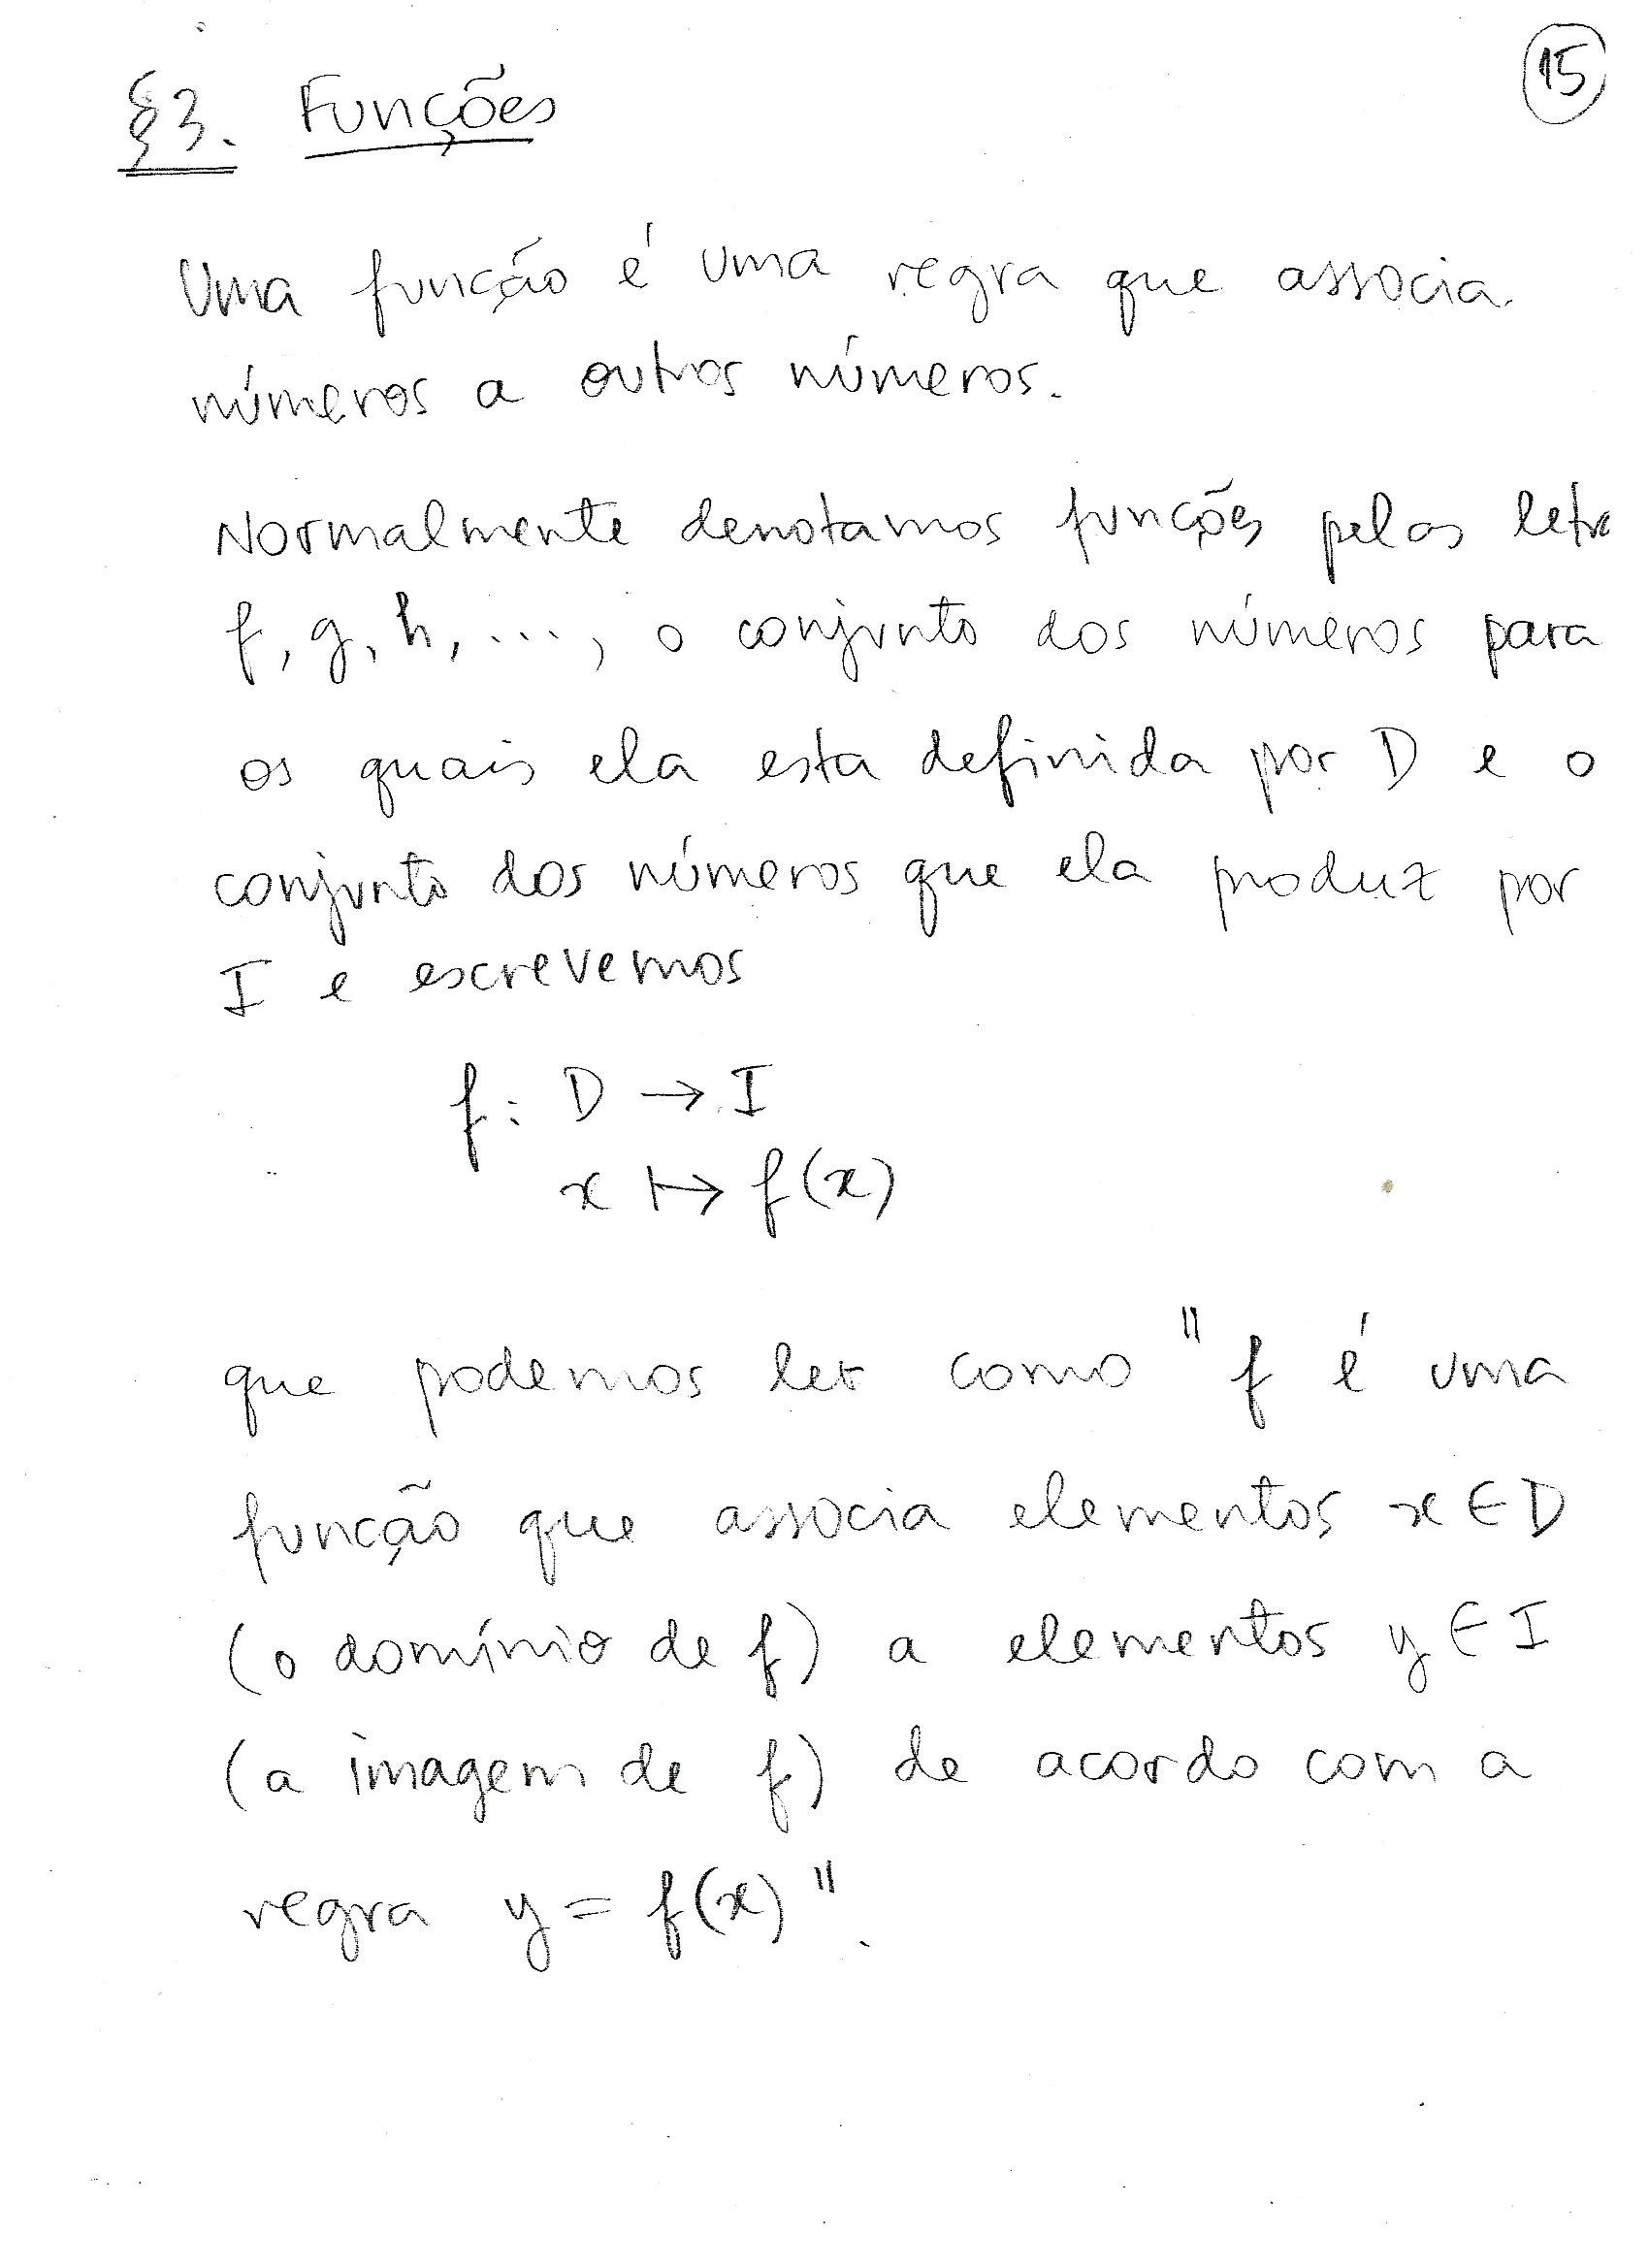 15
§3. Funções
Uma função é uma regra que associa
números a outros números.
Normalmente denotamos funções pelas letra
f, g, h, ..., o conjunto dos números para
os quais ela esta definida por D e o
conjunto dos números que ela produz por
I e escrevemos
f: D → I
x ↦ f(x)
que podemos ler como "f é uma
função que associa elementos x ∈ D
(o domínio de f) a elementos y ∈ I
(a imagem de f) de acordo com a
regra y = f(x)".